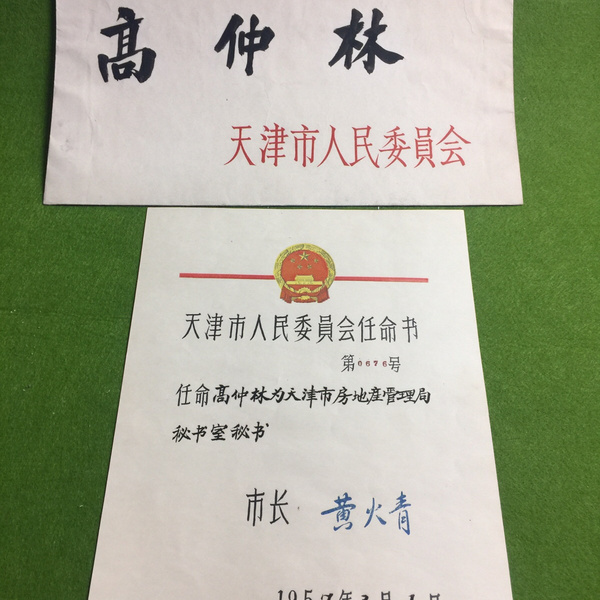 高仲林
天津市人民委員会
天津市人民委員会任命书
第6676号
任命高仲林为天津市房地産管理局
秘书室秘书
市长 黄火青
195 年 月 日